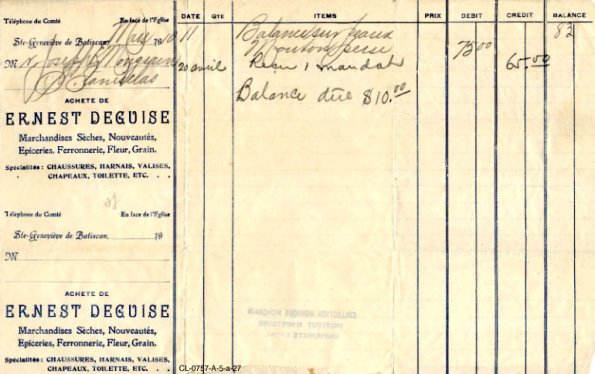 Téléphone du Comté En face de l'Eglise
Ste-Geneviève de Batiscan, Mai 10 1911
M Joseph Mongrain
St Stanislas
ACHETE DE
ERNEST DEGUISE
Marchandises Sèches, Nouveautés,
Epiceries, Ferronnerie, Fleur, Grain.
Spécialités : CHAUSSURES, HARNAIS, VALISES,
CHAPEAUX, TOILETTE, ETC.
DATE QTE ITEMS PRIX DEBIT CREDIT BALANCE
Balance sur peaux 82
Mouton perse 75 00
20 avril Recu 1 mandat 65.00
Balance dûe $10.00
Téléphone du Comté En face de l'Eglise
Ste-Geneviève de Batiscan, 19
M
ACHETE DE
ERNEST DEGUISE
Marchandises Sèches, Nouveautés,
Epiceries, Ferronnerie, Fleur, Grain.
Spécialités : CHAUSSURES, HARNAIS, VALISES,
CHAPEAUX, TOILETTE, ETC.
COLLECTION MONIQUE MONGRAIN
CL-0757-A-5-a-27